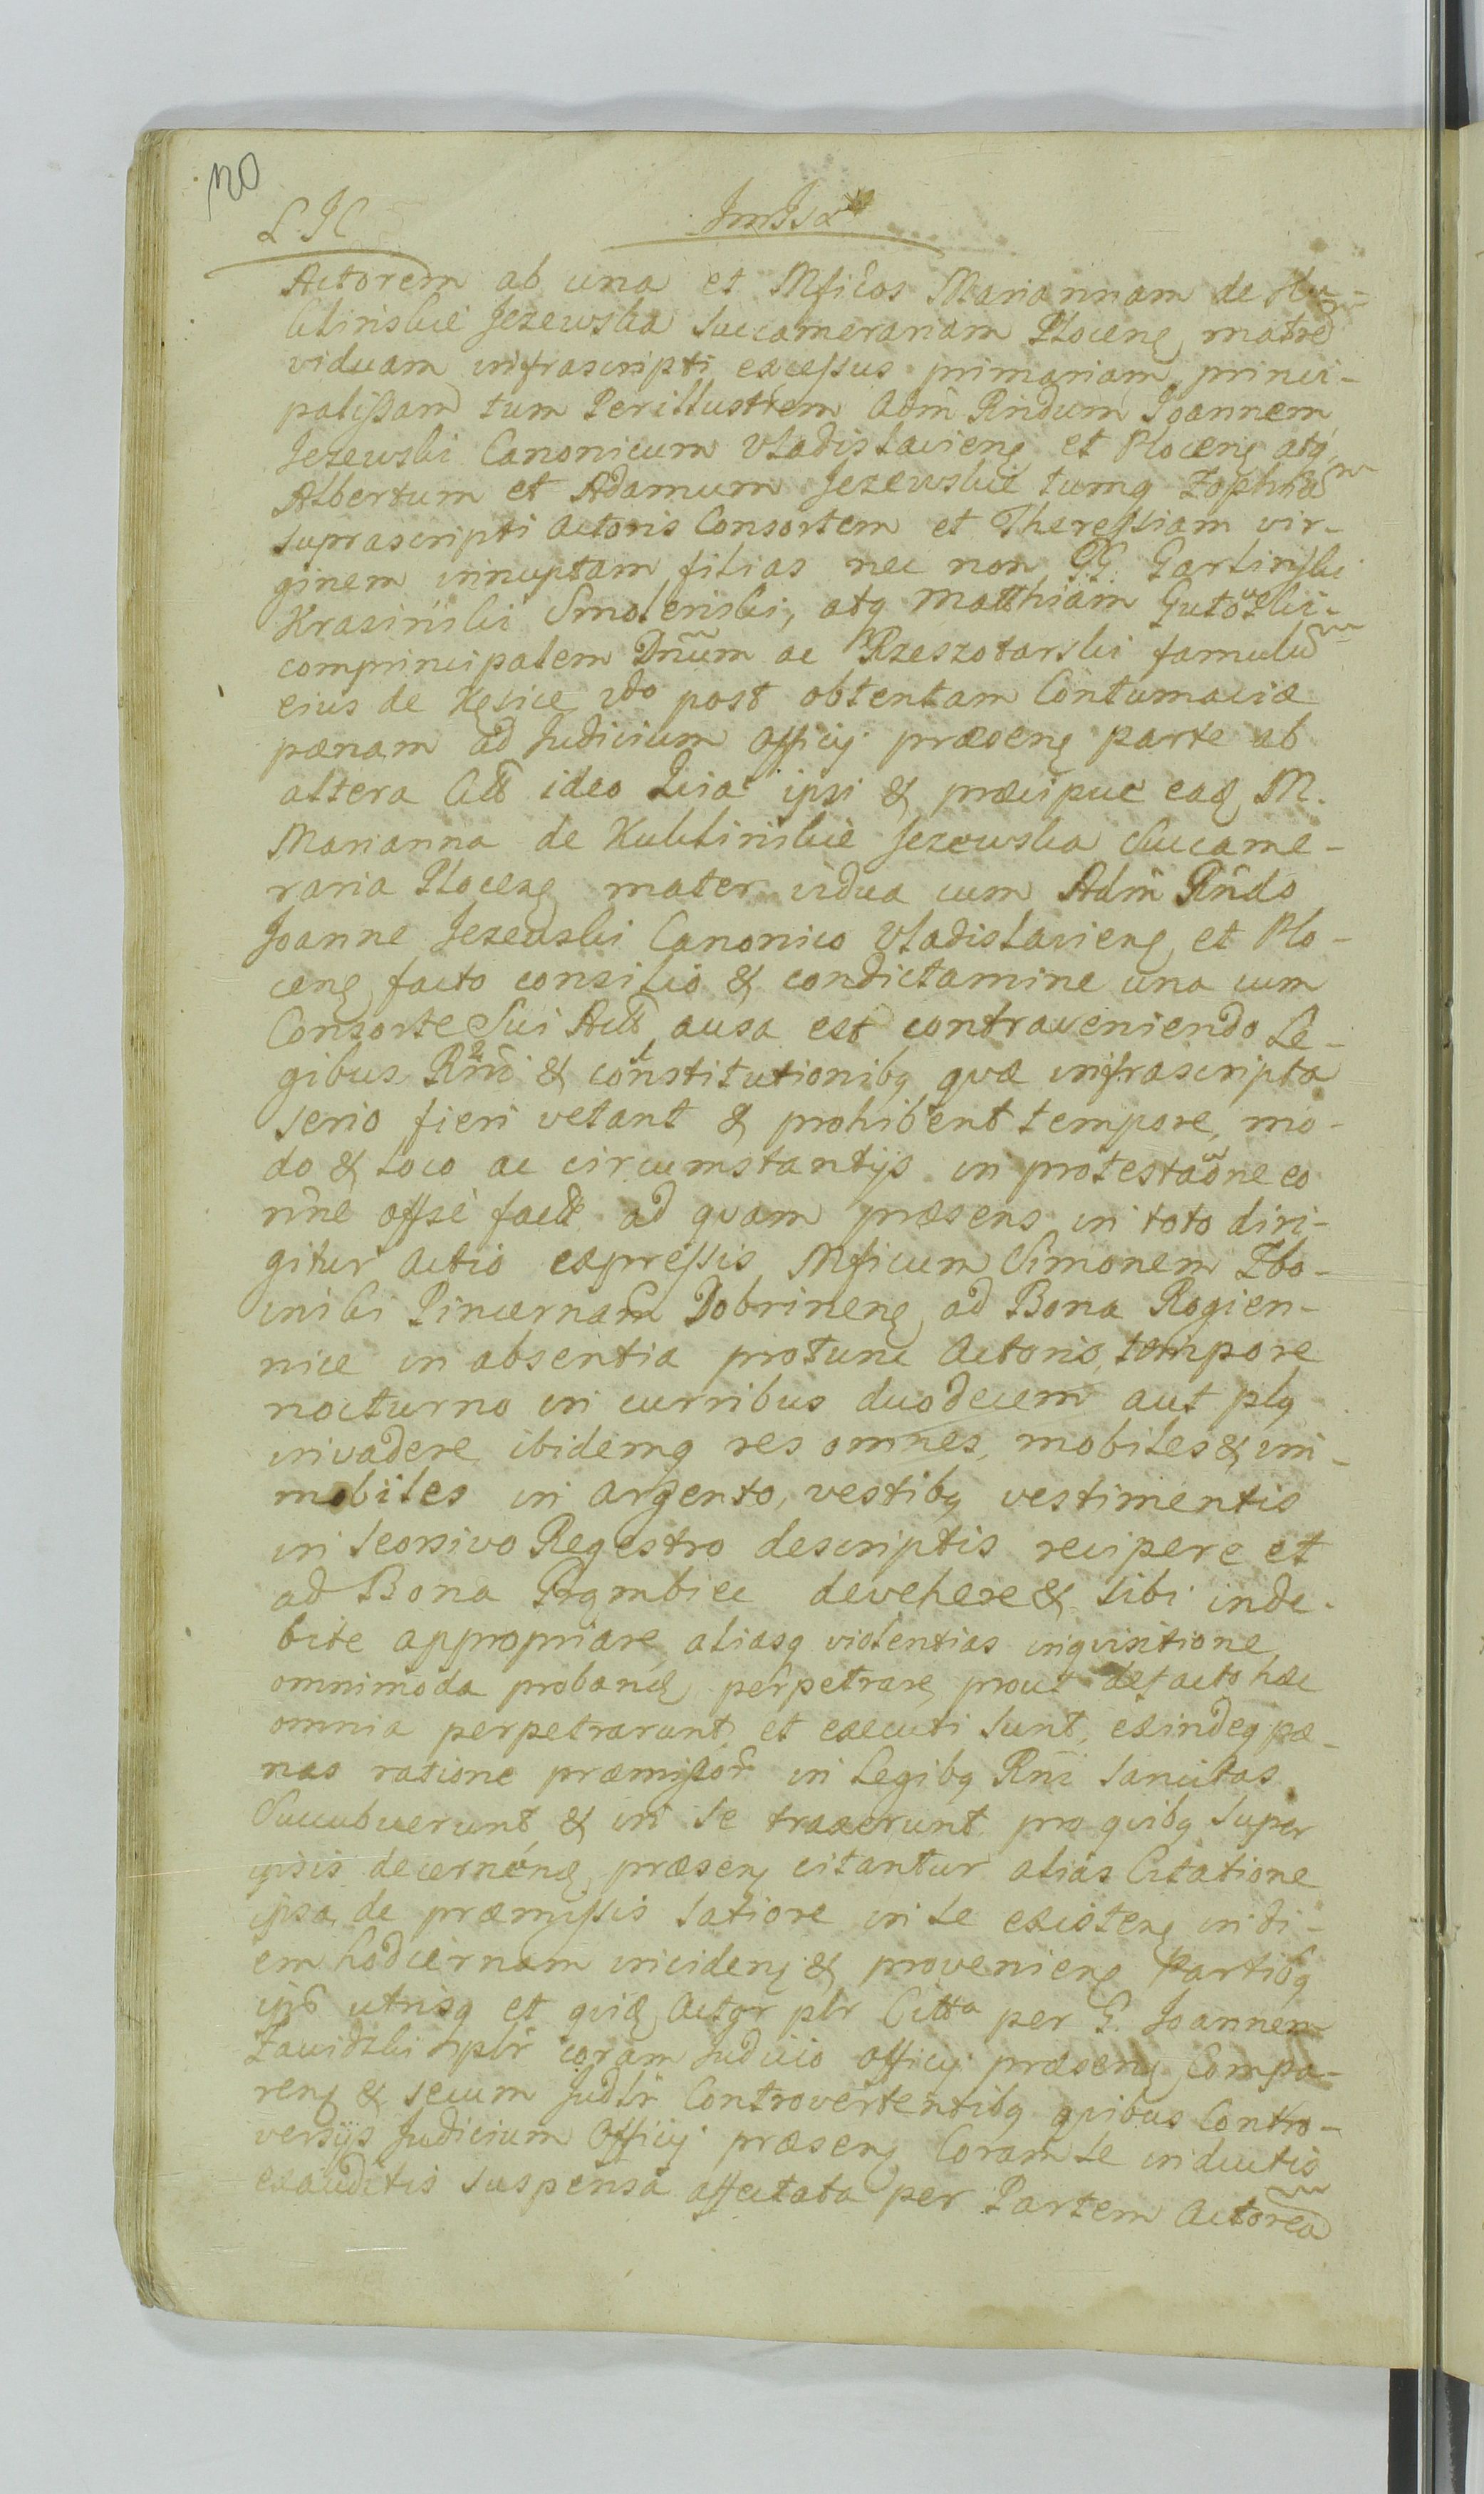 120
Actorem ab una et Mficos Mariannam de Ku-
klinskie Jezewska Succamerariam Plocens matrem
viduam infrascripti excessus primariam princi-
palissam tum Perillustrem Adm Rndum Joannem
Jezewski Canonicum Vladislaviens et Plocens atq
Albertum et Adamum Jezewskie tumq Zophiam
suprascripti Actoris Consortem et Theressiam vir-
ginem innuptam filias nec non GG. Garlinski
Krasinski Smolenski, atq Matthiam Gutowski
comprincipalem Dnum ac Rzeszotarski famulum
eius de Kęsice 2do post obtentam Contumaciæ
pænam ad Judicium Officij præsens parte ab
altera Citt ideo Quia ipsi & præcipue ead M.
Marianna de Kuklinskie Jezewska Succame-
raria Plocens mater vidua cum Adm Rndo
Joanne Jezewski Canonico Vladislaviens et Plo-
cens facto consilio & condictamine una cum
Consorte Sui Act ausa est contraveniendo Le-
gibus Rni & constitutionibq quæ infrascripta
serio fieri vetant & prohibent tempore, mo-
do & loco ac circumstantijs in protestaone eo
nne offse factt ad quam præsens in toto diri-
gitur actio expressis Mficum Simonem Zbo-
inski Pincernam Dobrinens ad Bona Rogien-
nice in absentia protunc Actoris, tempore
nocturno in curribus duodecem aut plq
invadere ibidemq res omnes, mobiles & im-
mobiles in argento, vestibq vestimentis
in seorsivo Regestro descriptis recipere et
ad Bona devehere & sibi inde-
bite appropriare aliasq violentias inquisitione
omnimoda probans perpetrare prout defacto hæc
omnia perpetrarunt et executi sunt, exindeq pæ-
nas ratione præmissor in Legibq Rni sancitas
Succubuerunt & in se traxerunt pro quibq super
ipsis decernens præsens citantur alias Citatione
ipsa de præmissis latiore in se existens in di-
em hodiernam incidens & proveniens Partibq
ips utrisq et quid Actor plr Citta per G. Joannem
Zawidzki plr coram Judicio Officij præsens Compa-
rens & secum Judlr Controvertentibq quibus Contro-
versijs Judicium Officij præsens Coram se inductis
exauditis suspensa affectata per Partem Actoream